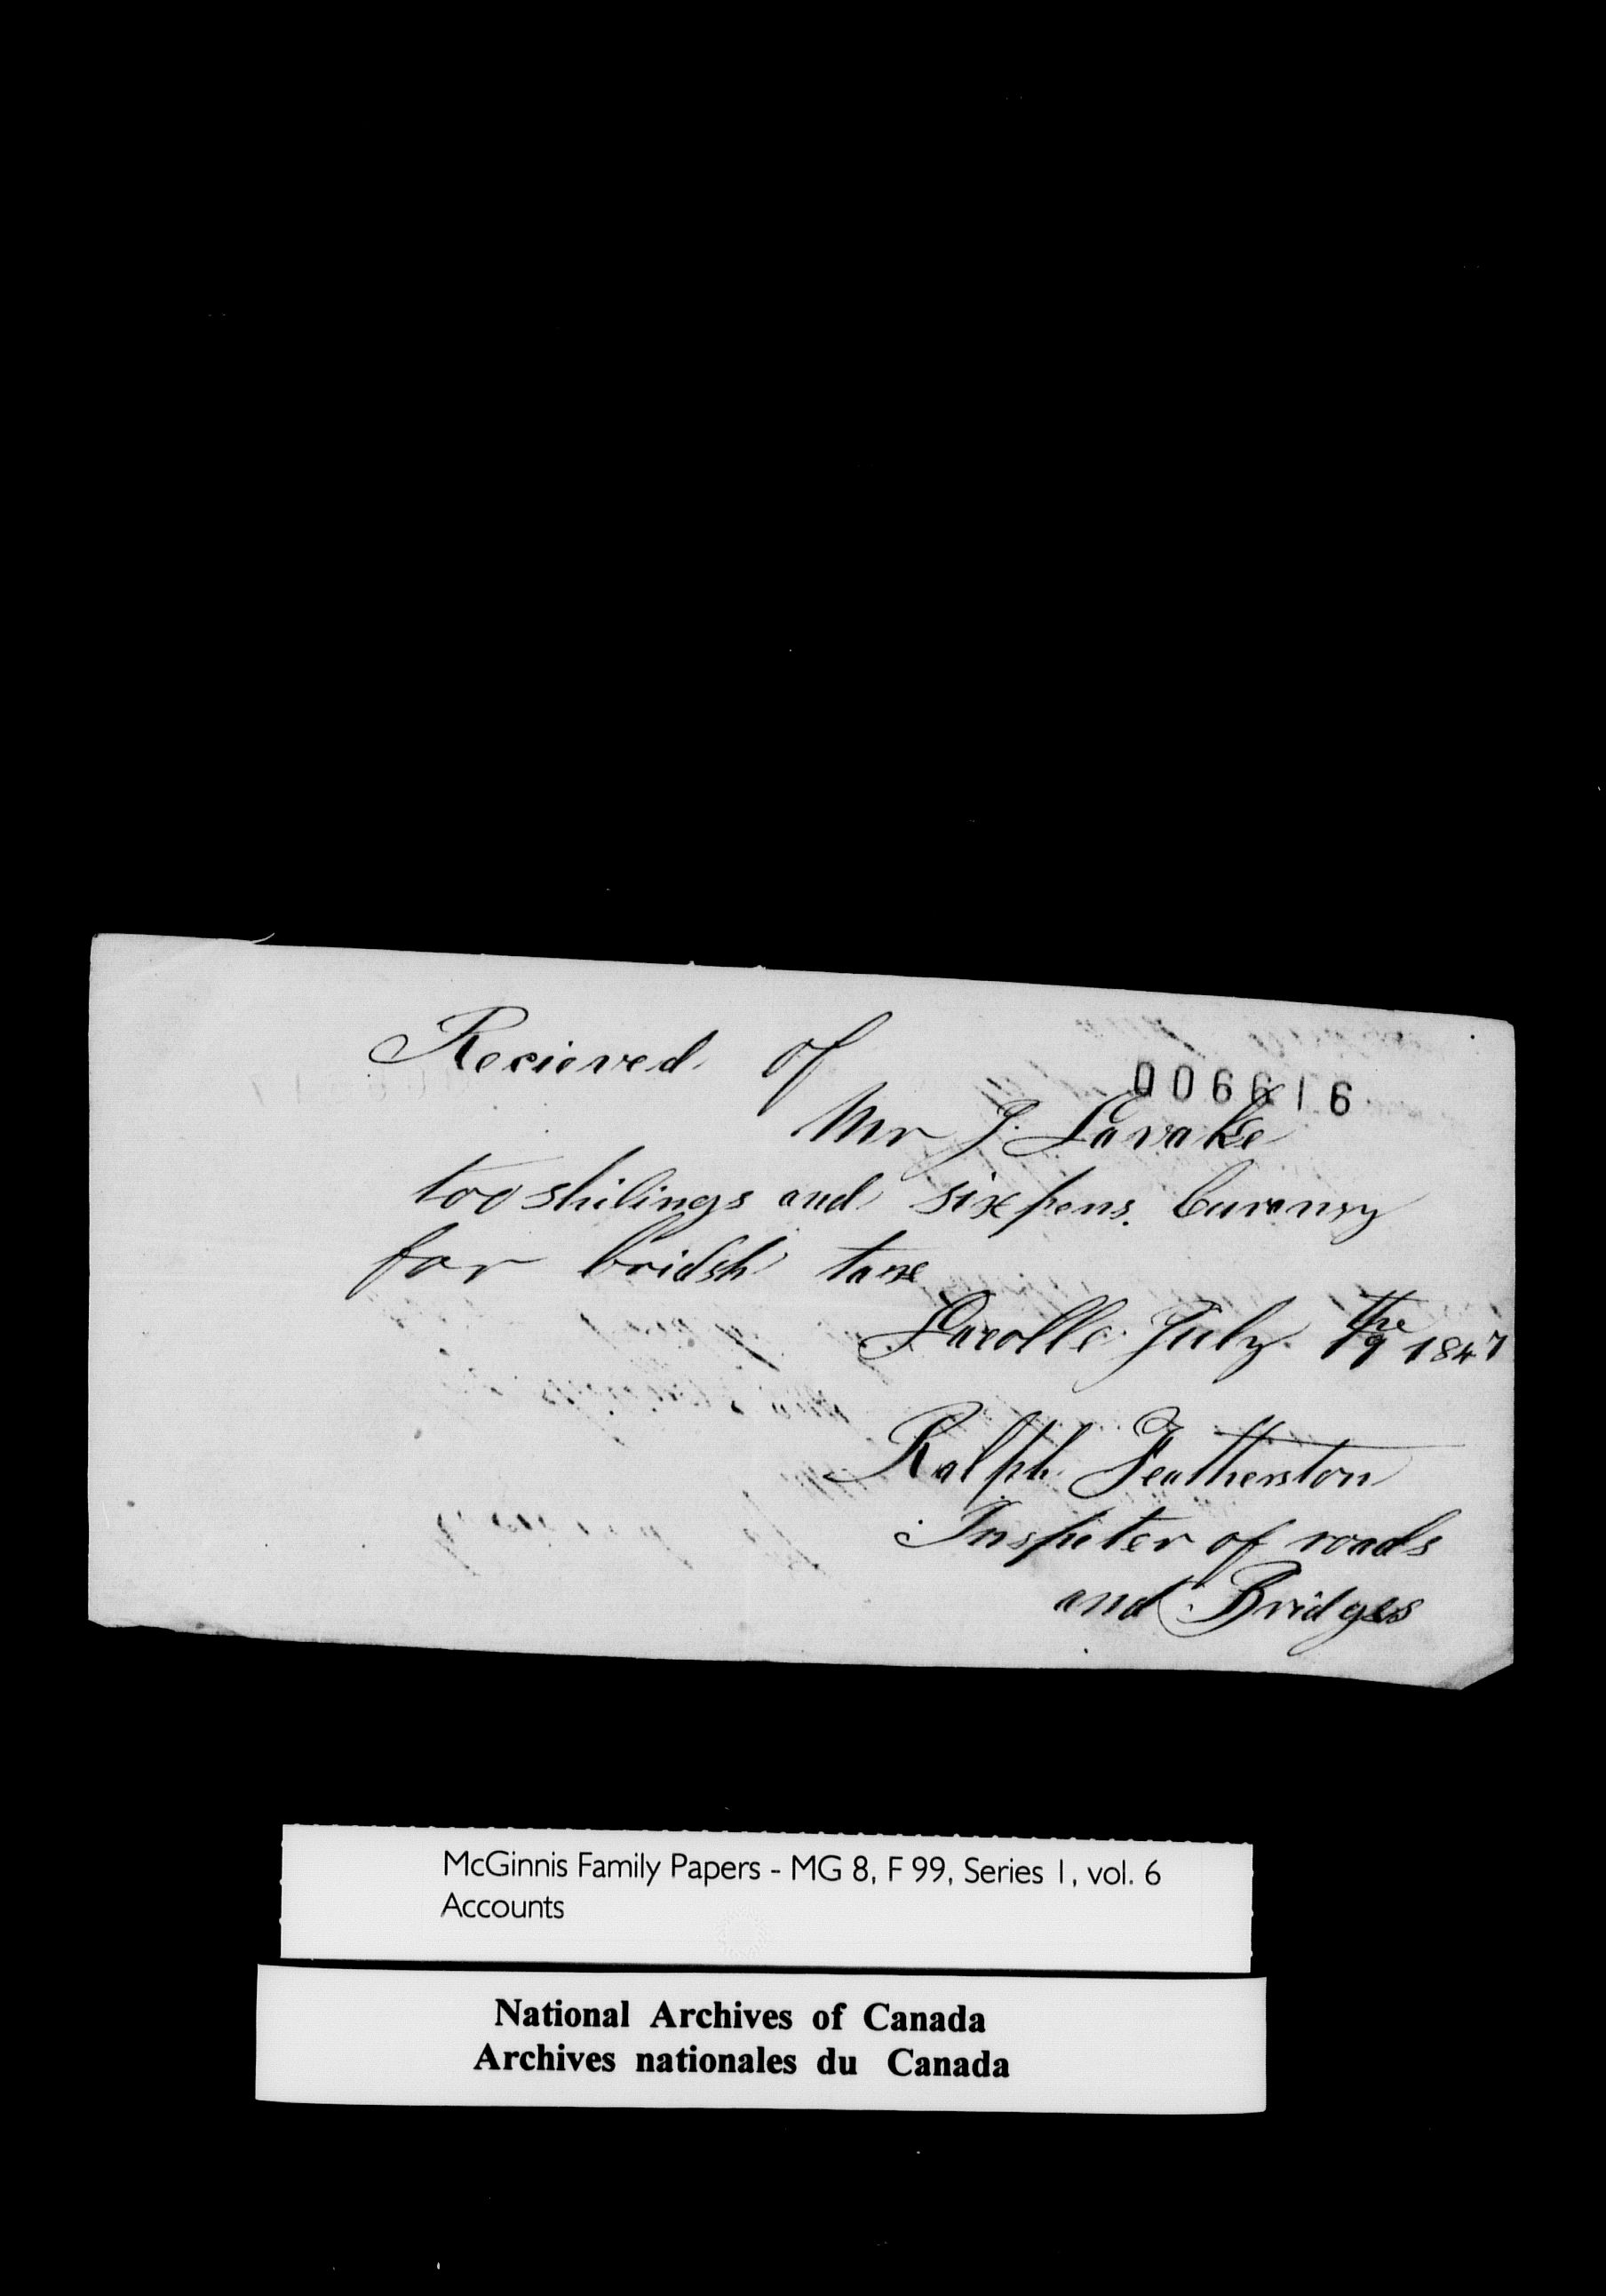 Recieved of
006616
Mr J. Lavake
too shilings and six pens. Curensy
for bridsh taxe
Lacolle July the 19 1847
Ralph Featherston
Inspeter of roads
and Bridges
McGinnis Family Papers - MG 8, F 99, Series 1, vol. 6
Accounts
National Archives of Canada
Archives nationales du Canada